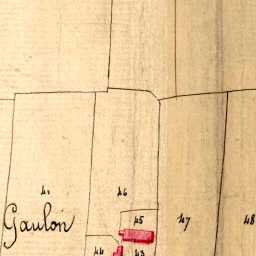 46
45
47
48
Gaulon
44
43